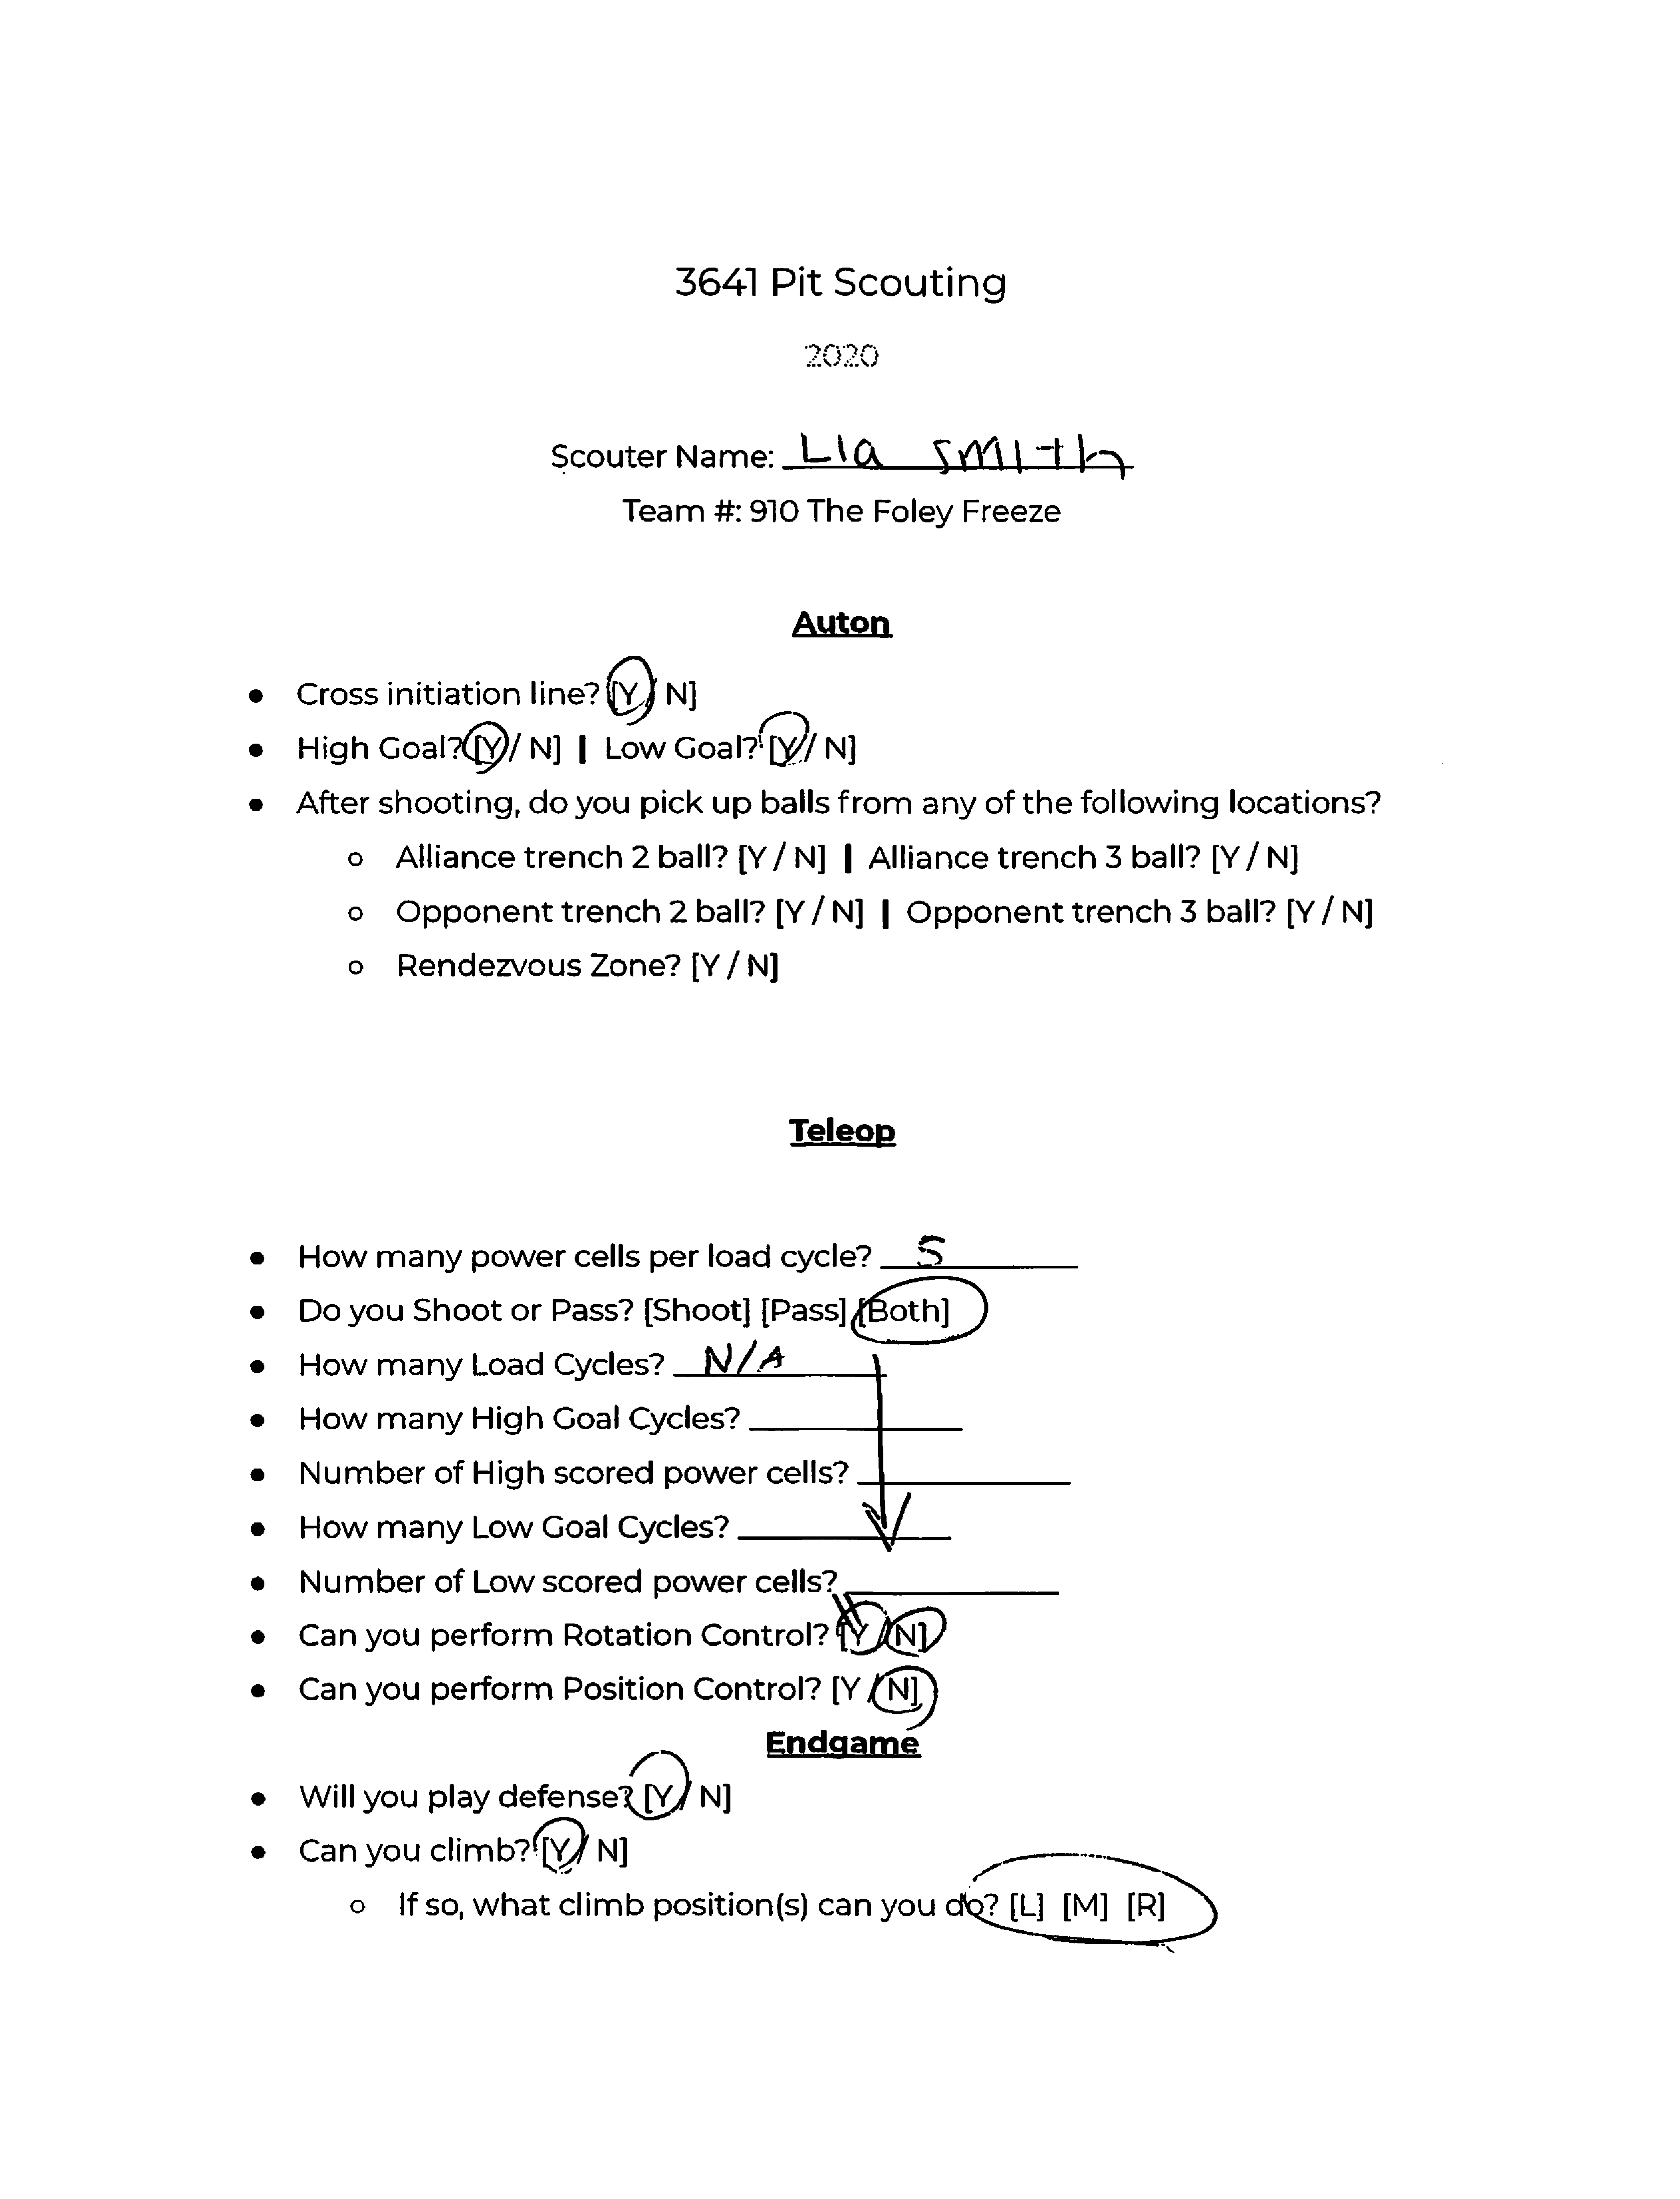 3641 Pit Scouting
2020
Scouter Name: Lia Smith
Team #: 910 The Foley Freeze
Auton
● Cross initiation line? [Y / N]
● High Goal? [Y / N] | Low Goal? [Y / N]
● After shooting, do you pick up balls from any of the following locations?
○ Alliance trench 2 ball? [Y / N] | Alliance trench 3 ball? [Y / N]
○ Opponent trench 2 ball? [Y / N] | Opponent trench 3 ball? [Y / N]
○ Rendezvous Zone? [Y / N]
Teleop
● How many power cells per load cycle? 5
● Do you Shoot or Pass? [Shoot] [Pass] [Both]
● How many Load Cycles? N/A
● How many High Goal Cycles?
● Number of High scored power cells?
● How many Low Goal Cycles?
● Number of Low scored power cells?
● Can you perform Rotation Control? [Y / N]
● Can you perform Position Control? [Y / N]
Endgame
● Will you play defense? [Y / N]
● Can you climb? [Y / N]
○ If so, what climb position(s) can you do? [L] [M] [R]